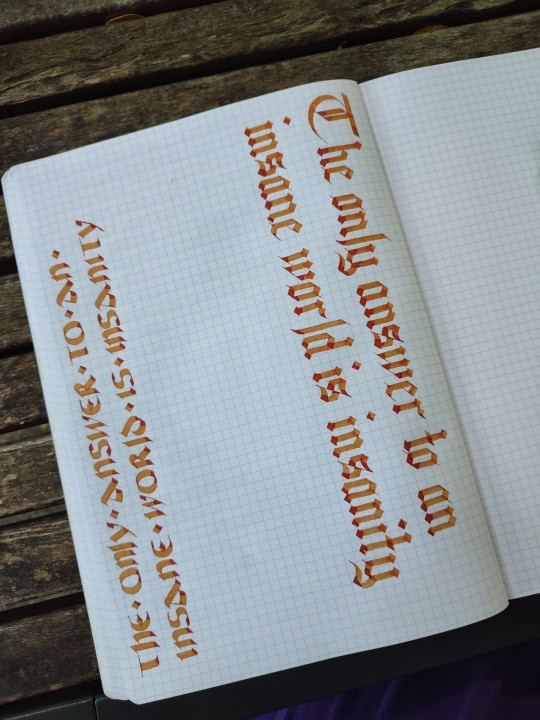 The only answer to an
insane world is insanity
THE·ONLY·ANSWER·TO·AN·
INSANE·WORLD·IS·INSANITY